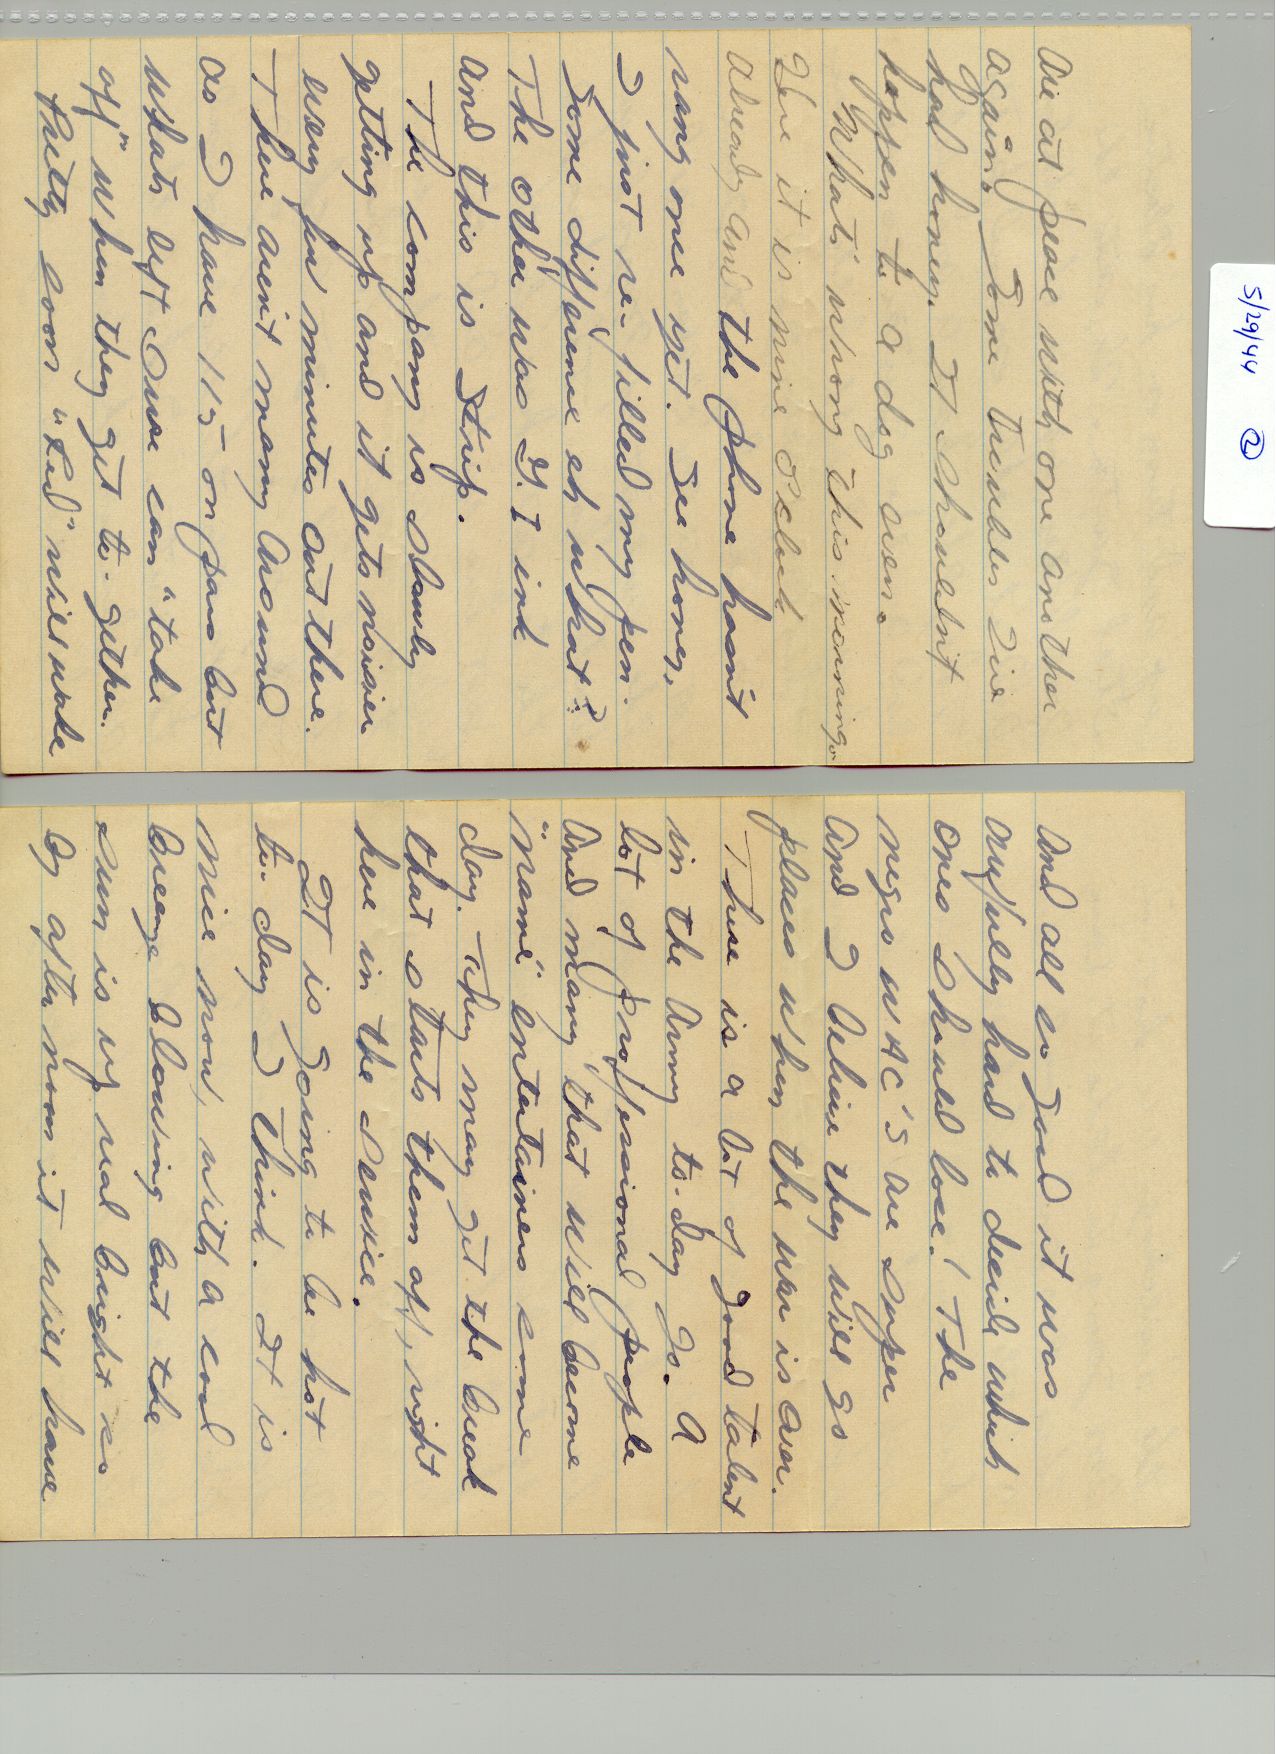 5/29/44 2
are at peace with one another
again. Some troubles I've
had honey. It shouldn't
happen to a dog even.
What's wrong this morning.
Here it is nine o'clock
already and the phone hasn't
rang once yet. See honey,
I just re-filled my pen.
Some difference eh what?
The other was G.I ink
and this is Strip.
The company is slowly
getting up and it gets noisier
every few minutes out there.
There aren't many around
as I have 115 on pass but
whats left sure can "take
off" when they get to-gether.
Pretty soon "Red" will wake
and all so good it was
awfully hard to decide which
ones should lose! The
negro WAC'S are super
and I believe they will go
places when the war is over.
There is a lot of good talent
in the Army to-day Jo. A
lot of proffesional people
and many that will become
"name" entertainers some
day. They may get the break
that starts them off, right
here in the service.
It is going to be hot
to-day I think. It is
nice now, with a cool
breeze blowing but the
sun is up real bright so
by afternoon it will have